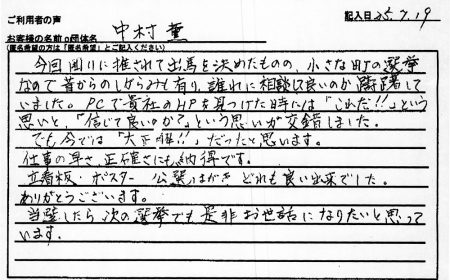 ご利用者の声
記入日 25.7.19
お客様の名前 or団体名 中村 薫
(匿名希望の方は「匿名希望」とご記入ください)
今回周りに推されて出馬を決めたものの、小さな町の選挙
なので昔からのしがらみも有り、誰れに相談し良いのか躊躇して
いました。PCで貴社のHPを見つけた時には「これだ!!」という
思いと、「信じて良いのか?」という思いが交錯しました。
でも今では「大正解!!」だったと思います。
仕事の早さ、正確さにも納得です。
立看板・ポスター 公選はがき どれも良い出来でした。
ありがとうございます。
当選したら次の選挙でも是非お世話になりたいと思って
います。